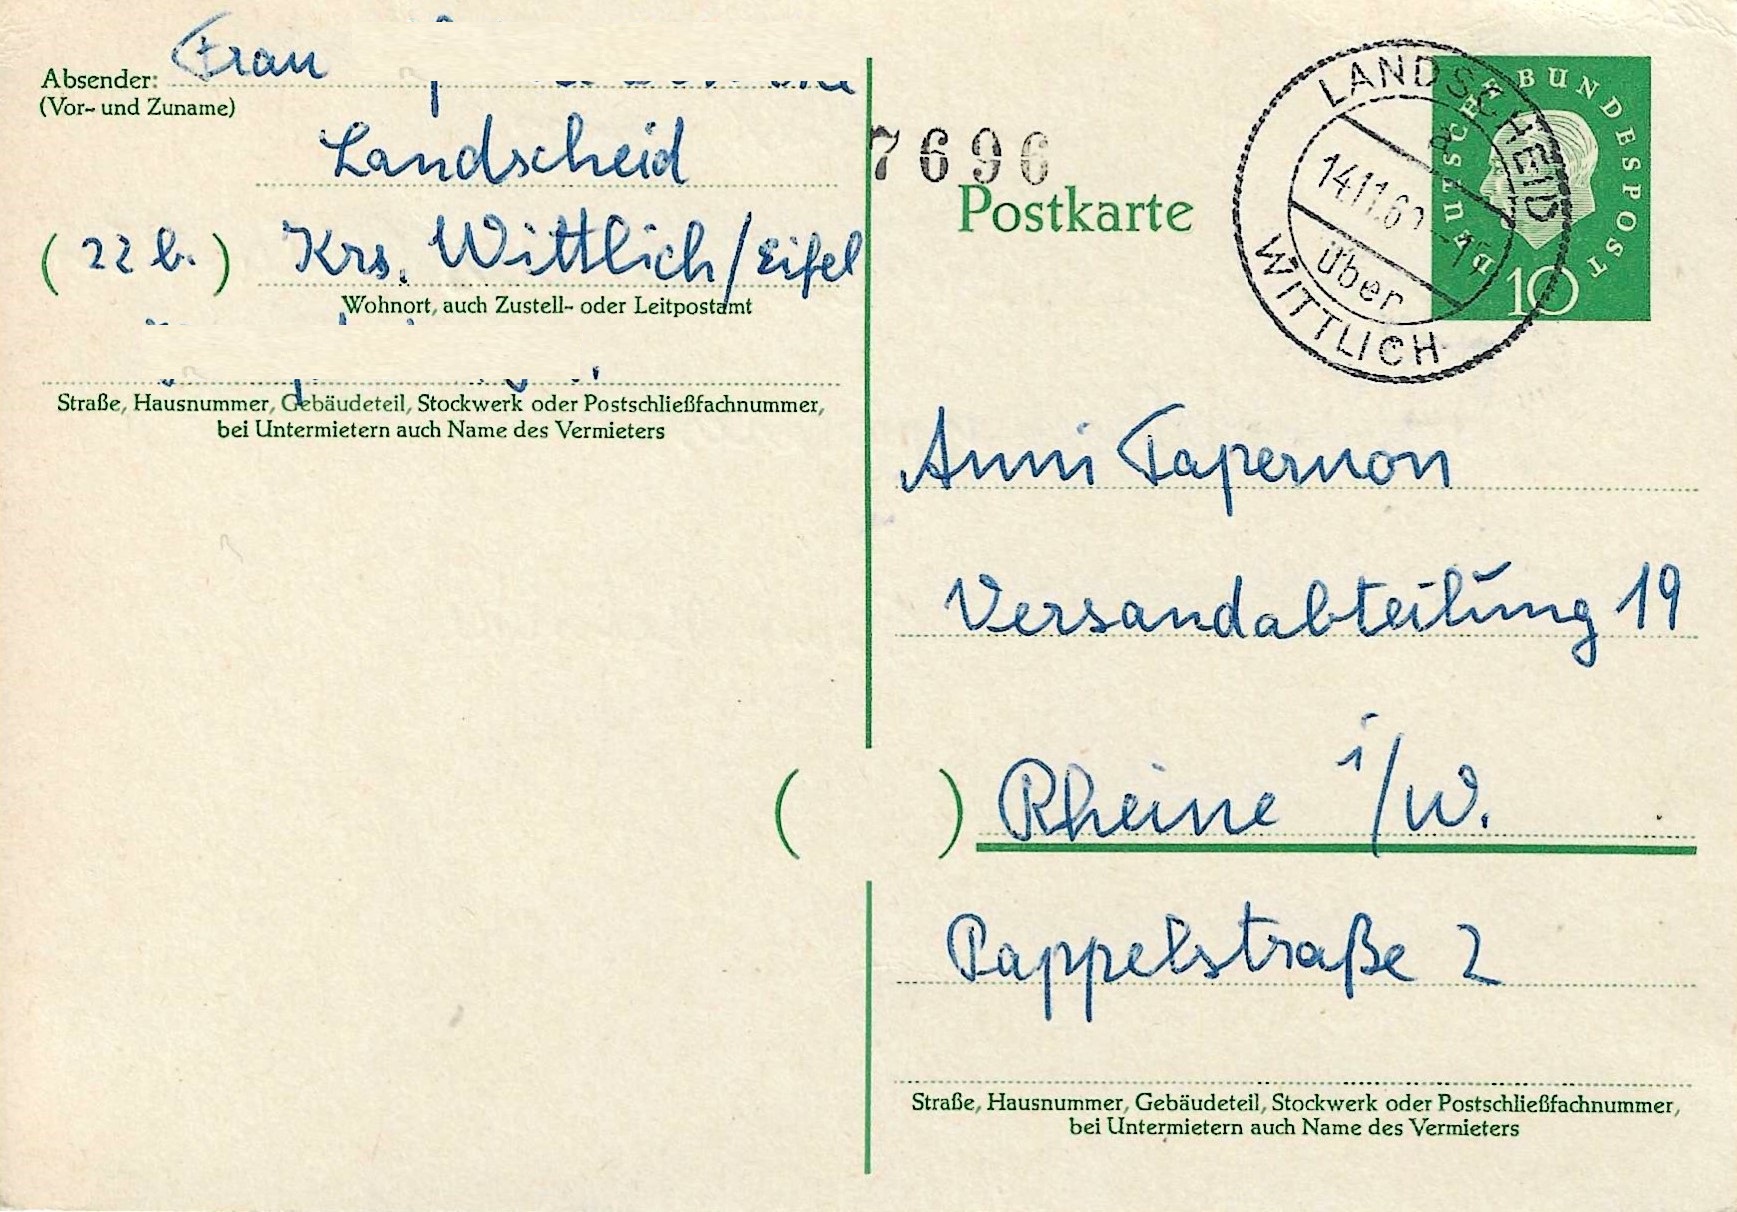 Absender: Frau
(Vor- und Zuname)
Landscheid
(22 b.) Krs. Wittlich/Eifel
Wohnort, auch Zustell- oder Leitpostamt
Straße, Hausnummer, Gebäudeteil, Stockwerk oder Postschließfachnummer,
bei Untermietern auch Name des Vermieters
7696
Postkarte
LANDSCHEID
a
über
WITTLICH
DEUTSCHE BUNDESPOST
10
Anni Tapernon
Versandabteilung 19
( ) Rheine i/W.
Pappelstraße 2
Straße, Hausnummer, Gebäudeteil, Stockwerk oder Postschließfachnummer,
bei Untermietern auch Name des Vermieters